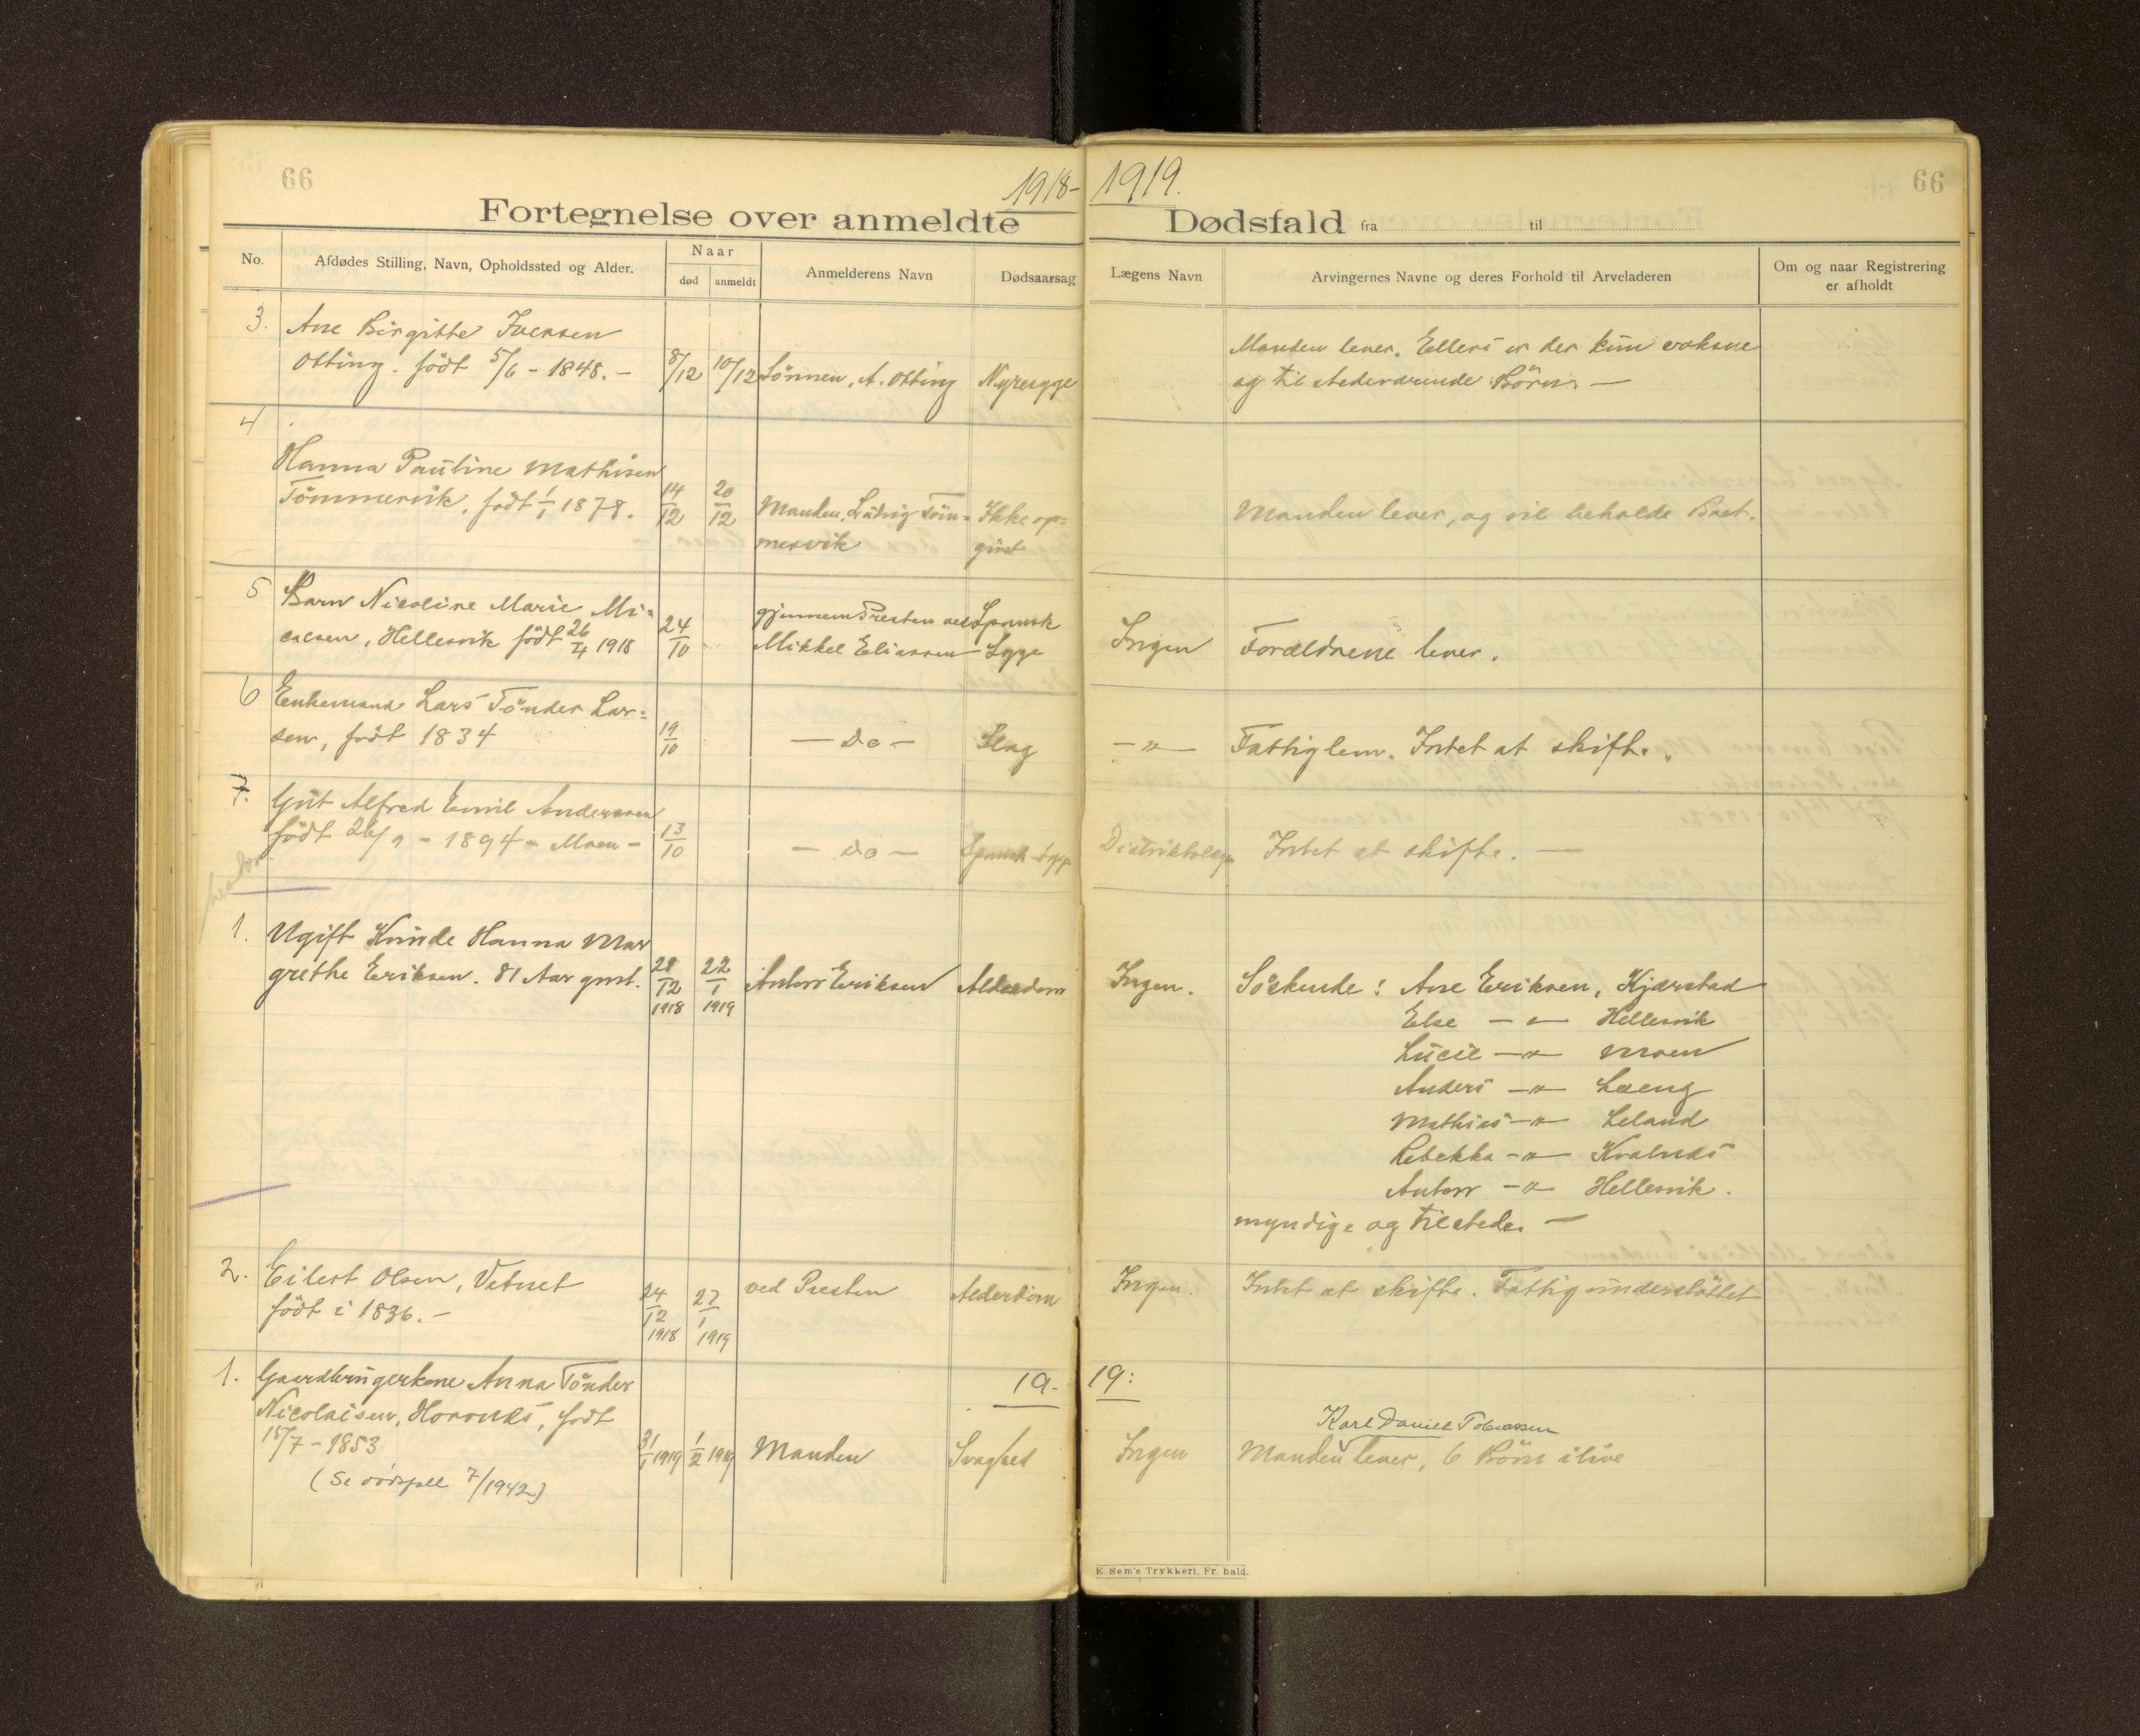 66
1918-
1919.
66
Fortegnelse over anmeldte
Dødsfald fra til
No.
Afdødes Stilling, Navn, Opholdssted og Alder.
Naar
død
anmeldt
Anmelderens Navn
Dødsaarsag
Lægens Navn
Arvingernes Navne og deres Forhold til Arveladeren
Om og naar Registrering
er afholdt
3. Ane Birgitte Iversen
Otting. födt 5/6 - 1848. - 8/12 10/12 Sönnen, A. Otting Nyresyge
Manden lever. Ellers er der kun voksne
og tilstedeværende Börn. —
4
Hanna Pauline Mathisen
Tömmervik, födt 1/1 1878. 14/12 20/12 Manden, Ludvig Töm= Ikke op=
mervik givet
Manden lever, og vil beholde Boet.
5 Barn Nicoline Marie Mi=
, Hellesvik födt 26/4 1918 24/10 gjennem Presten ved Spansk
Mikkel Eliassen Syge
Ingen Forældrene lever.
6 Enkemand Lars Tönder Lar=
sen, födt 1834 19/10 — Do — Slag
—"— Fattiglem. Intet at skifte.
7. Gut Alfred Emil Anderssen
födt 26/9 - 1894 - Moen - 13/10 — Do — Spansk syge
Distriktslægen Intet at skifte. —
1. Ugift Kvinde Hanna Mar
grethe Eriksen. 81 Aar gml. 28/12 1918 22/1 1919 Anton Eriksen Alderdom
Ingen. Söskende: Ane Eriksen, Kjærstad
Else —"— Hellesvik
Lucie —"— Moen
Anders —"— Laeng
Mathias —"— Leland
Rebekka —"— Kvalnes
Anton —"— Hellesvik.
myndige og tilstede. —
2. Eilert Olsen, Vetnet
födt i 1836. - 24/12 1918 27/1 1919 ved Presten Alderdom
Ingen. Intet at skifte. Fattigunderstöttet
19-
19:
1. Gaardbrugerkone Anna Tönder
Nicolaisen, Hornnes, födt
15/7 - 1853 31/1 1919 1/2 1919 Manden Svaghed
(Se dödsfall 7/1942)
Karl Daniel Tobiassen
Ingen Manden lever, 6 Börn ilive
E. Sem's Trykkeri, Fr. hald.